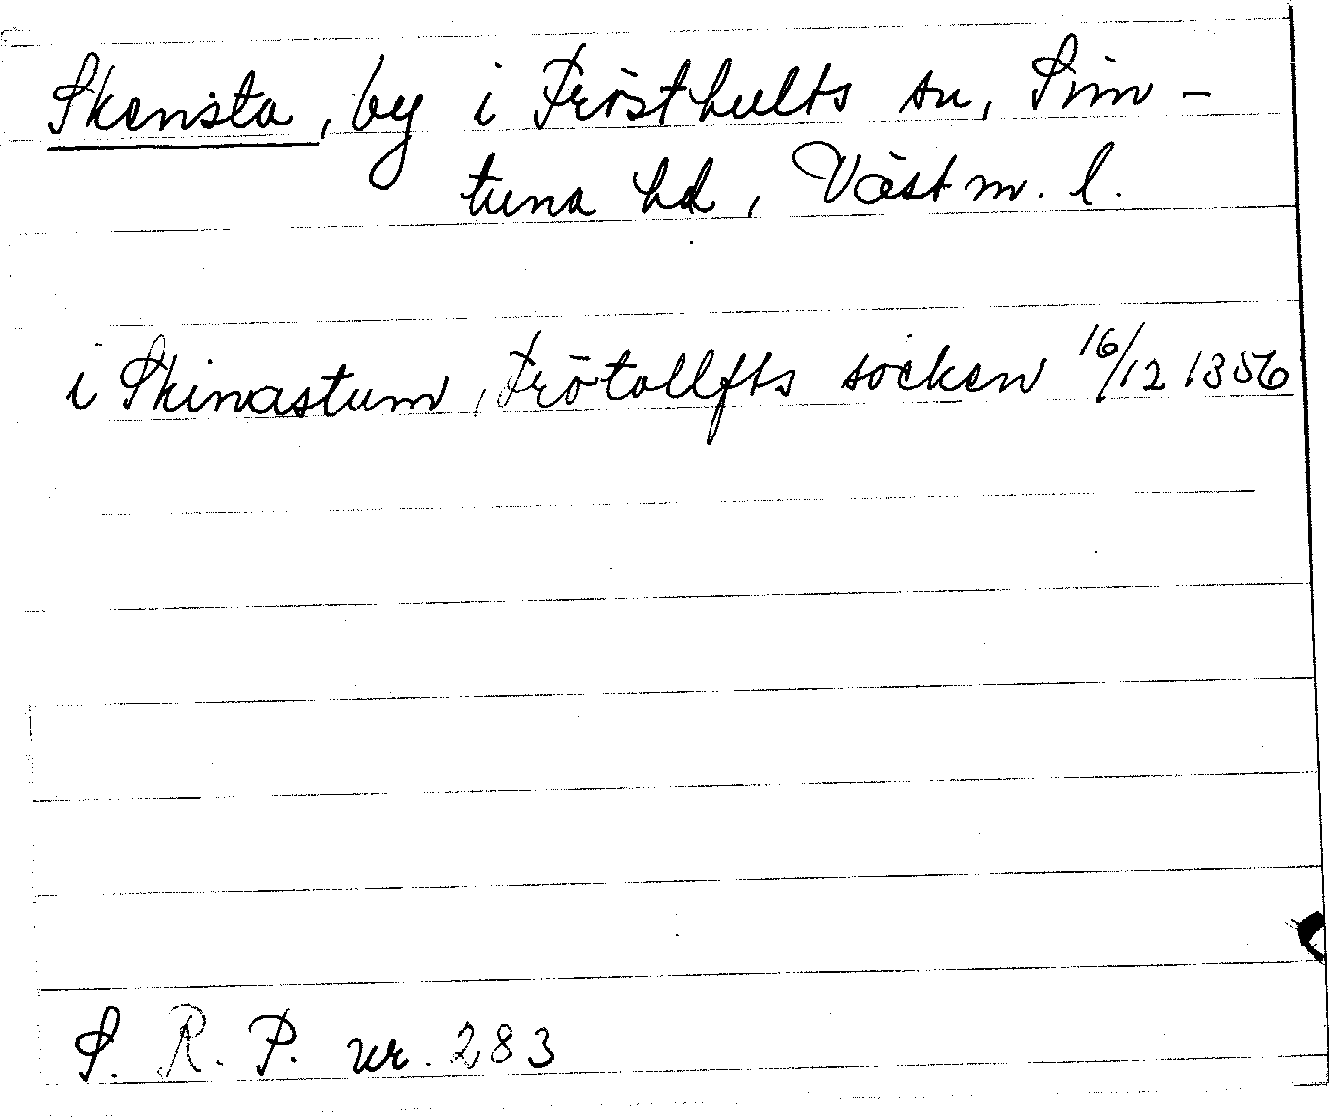 Skensta, by i Frösthults sn, Sim-
tuna hd, Västm. l.
i Skinastum, Frötollfts socken 16/12 1356
S. R. P. nr. 283